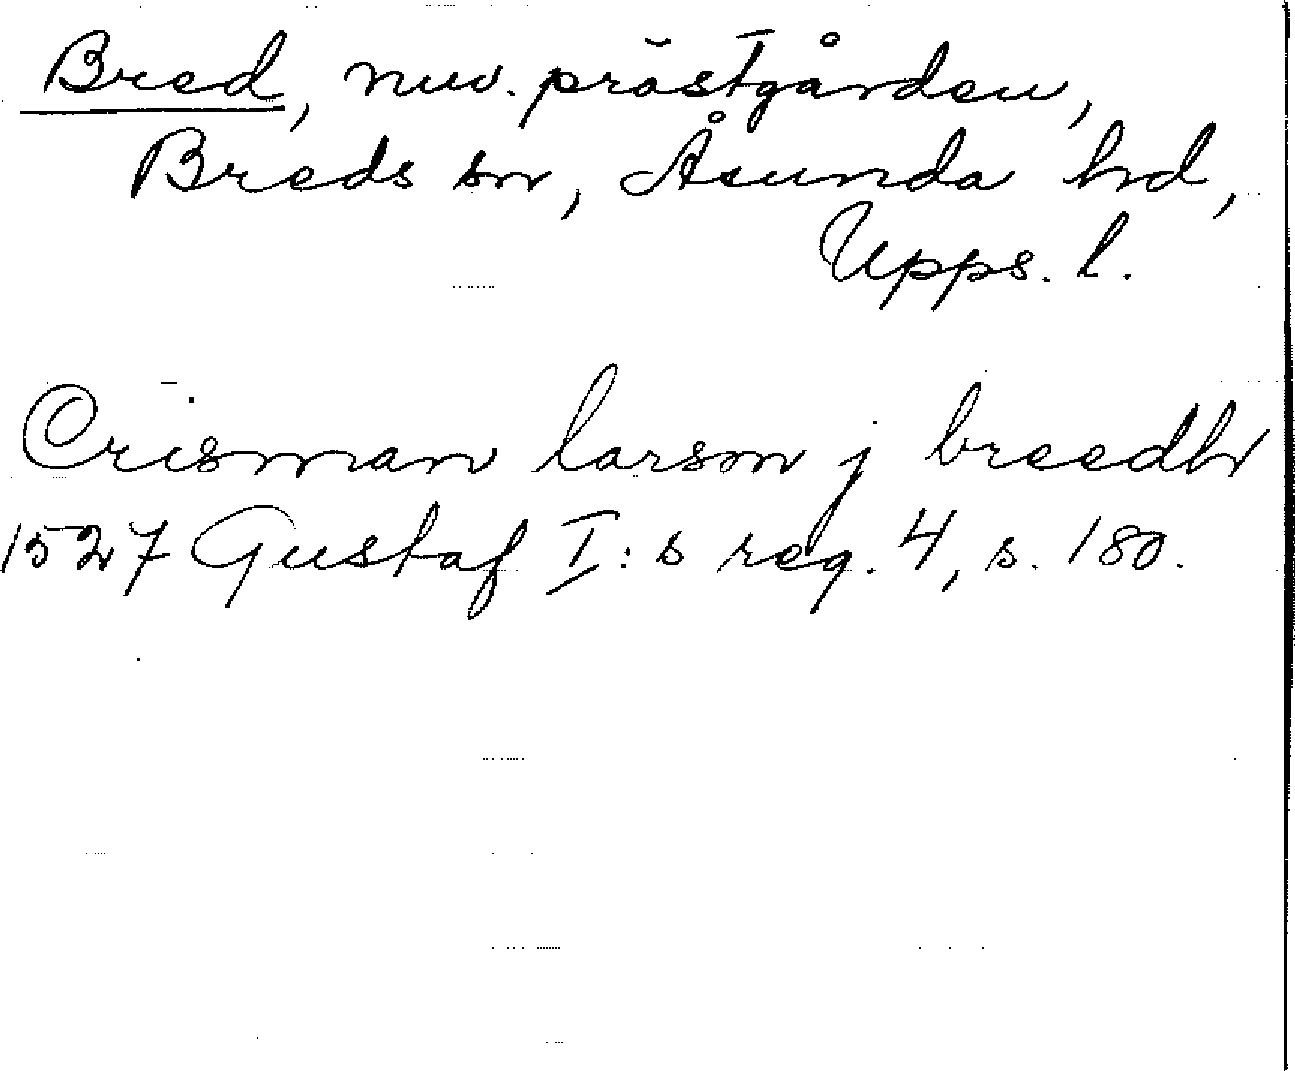 Bred, nuv. prästgården,
Breds sn, Åsunda hd,
Upps. l.
Crisman larson j breedh
1527 Gustaf I:s reg. 4, s. 180.